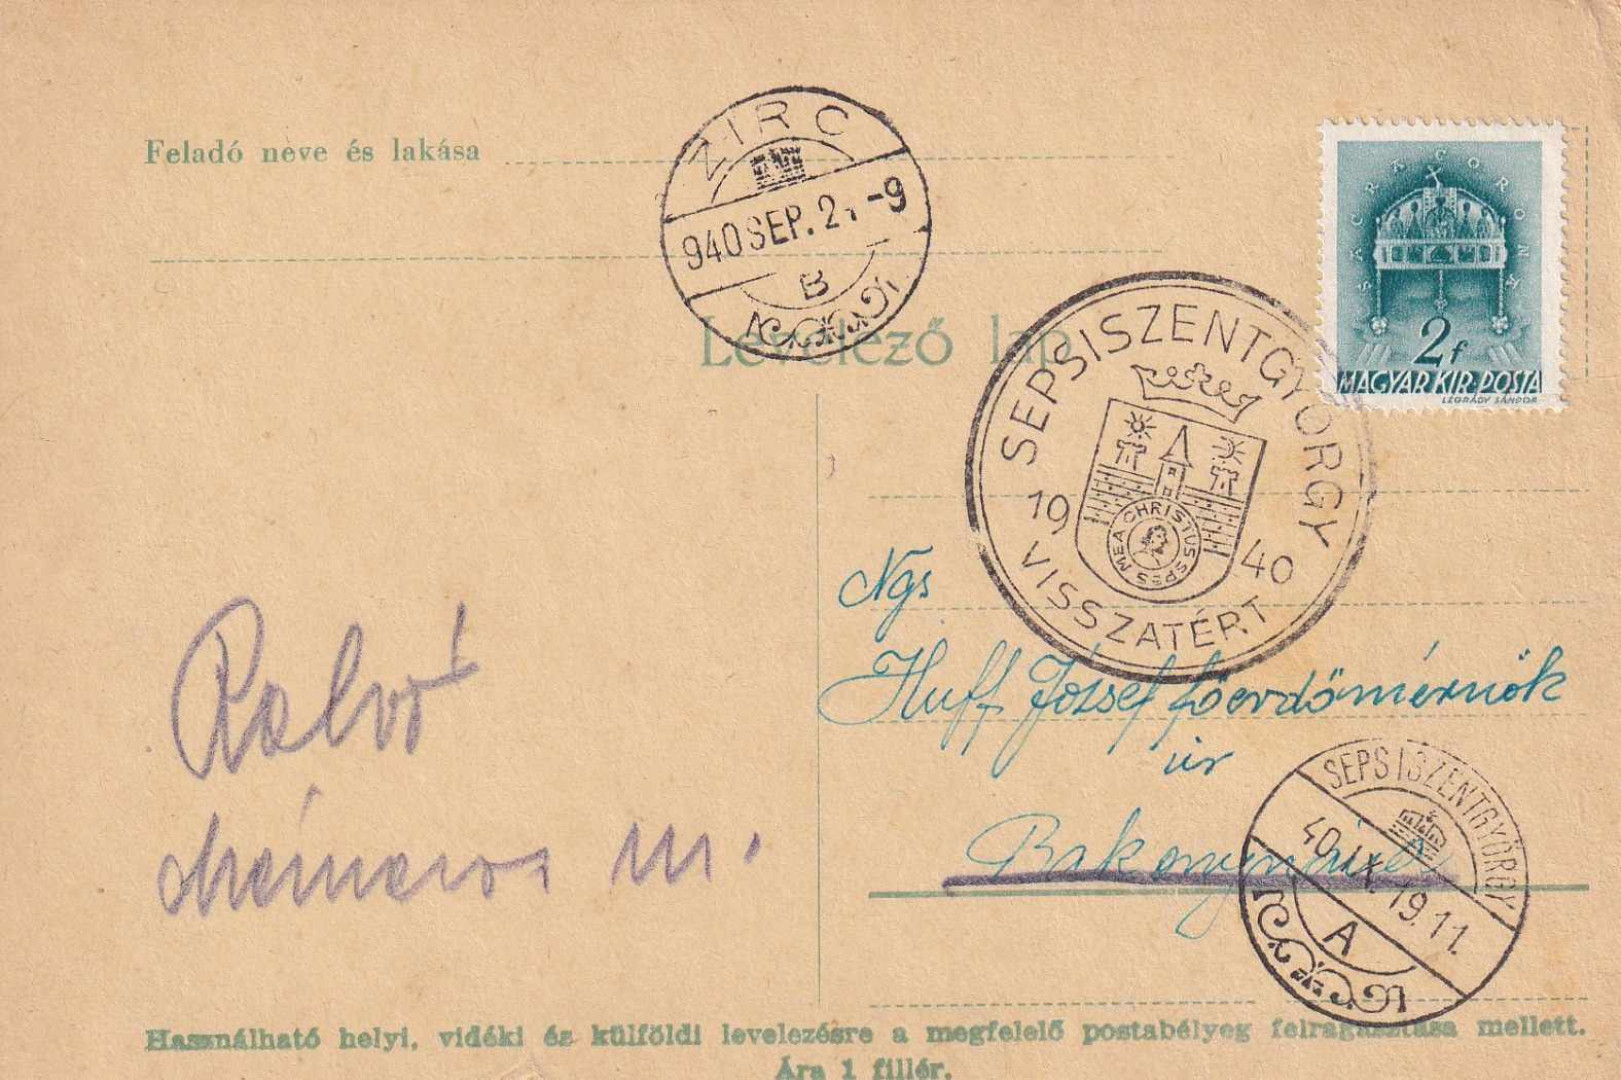 Feladó neve és lakása
ZIRC
940 SEP. 2 -9
B
SACRA CORONA
2f
MAGYAR KIR. POSTA
LÉGRÁDY SÁNDOR
Levelező lap
SEPSISZENTGYÖRGY
19 40
CHRISTUS SPES MEA
VISSZATÉRT
Ngs
Huff József főerdőmérnök
úr
Bakonynána
SEPSISZENTGYÖRGY
40. IX. 19. 11.
A
m.
Használható helyi, vidéki és külföldi levelezésre a megfelelő postabélyeg felragasztása mellett.
Ára 1 fillér.